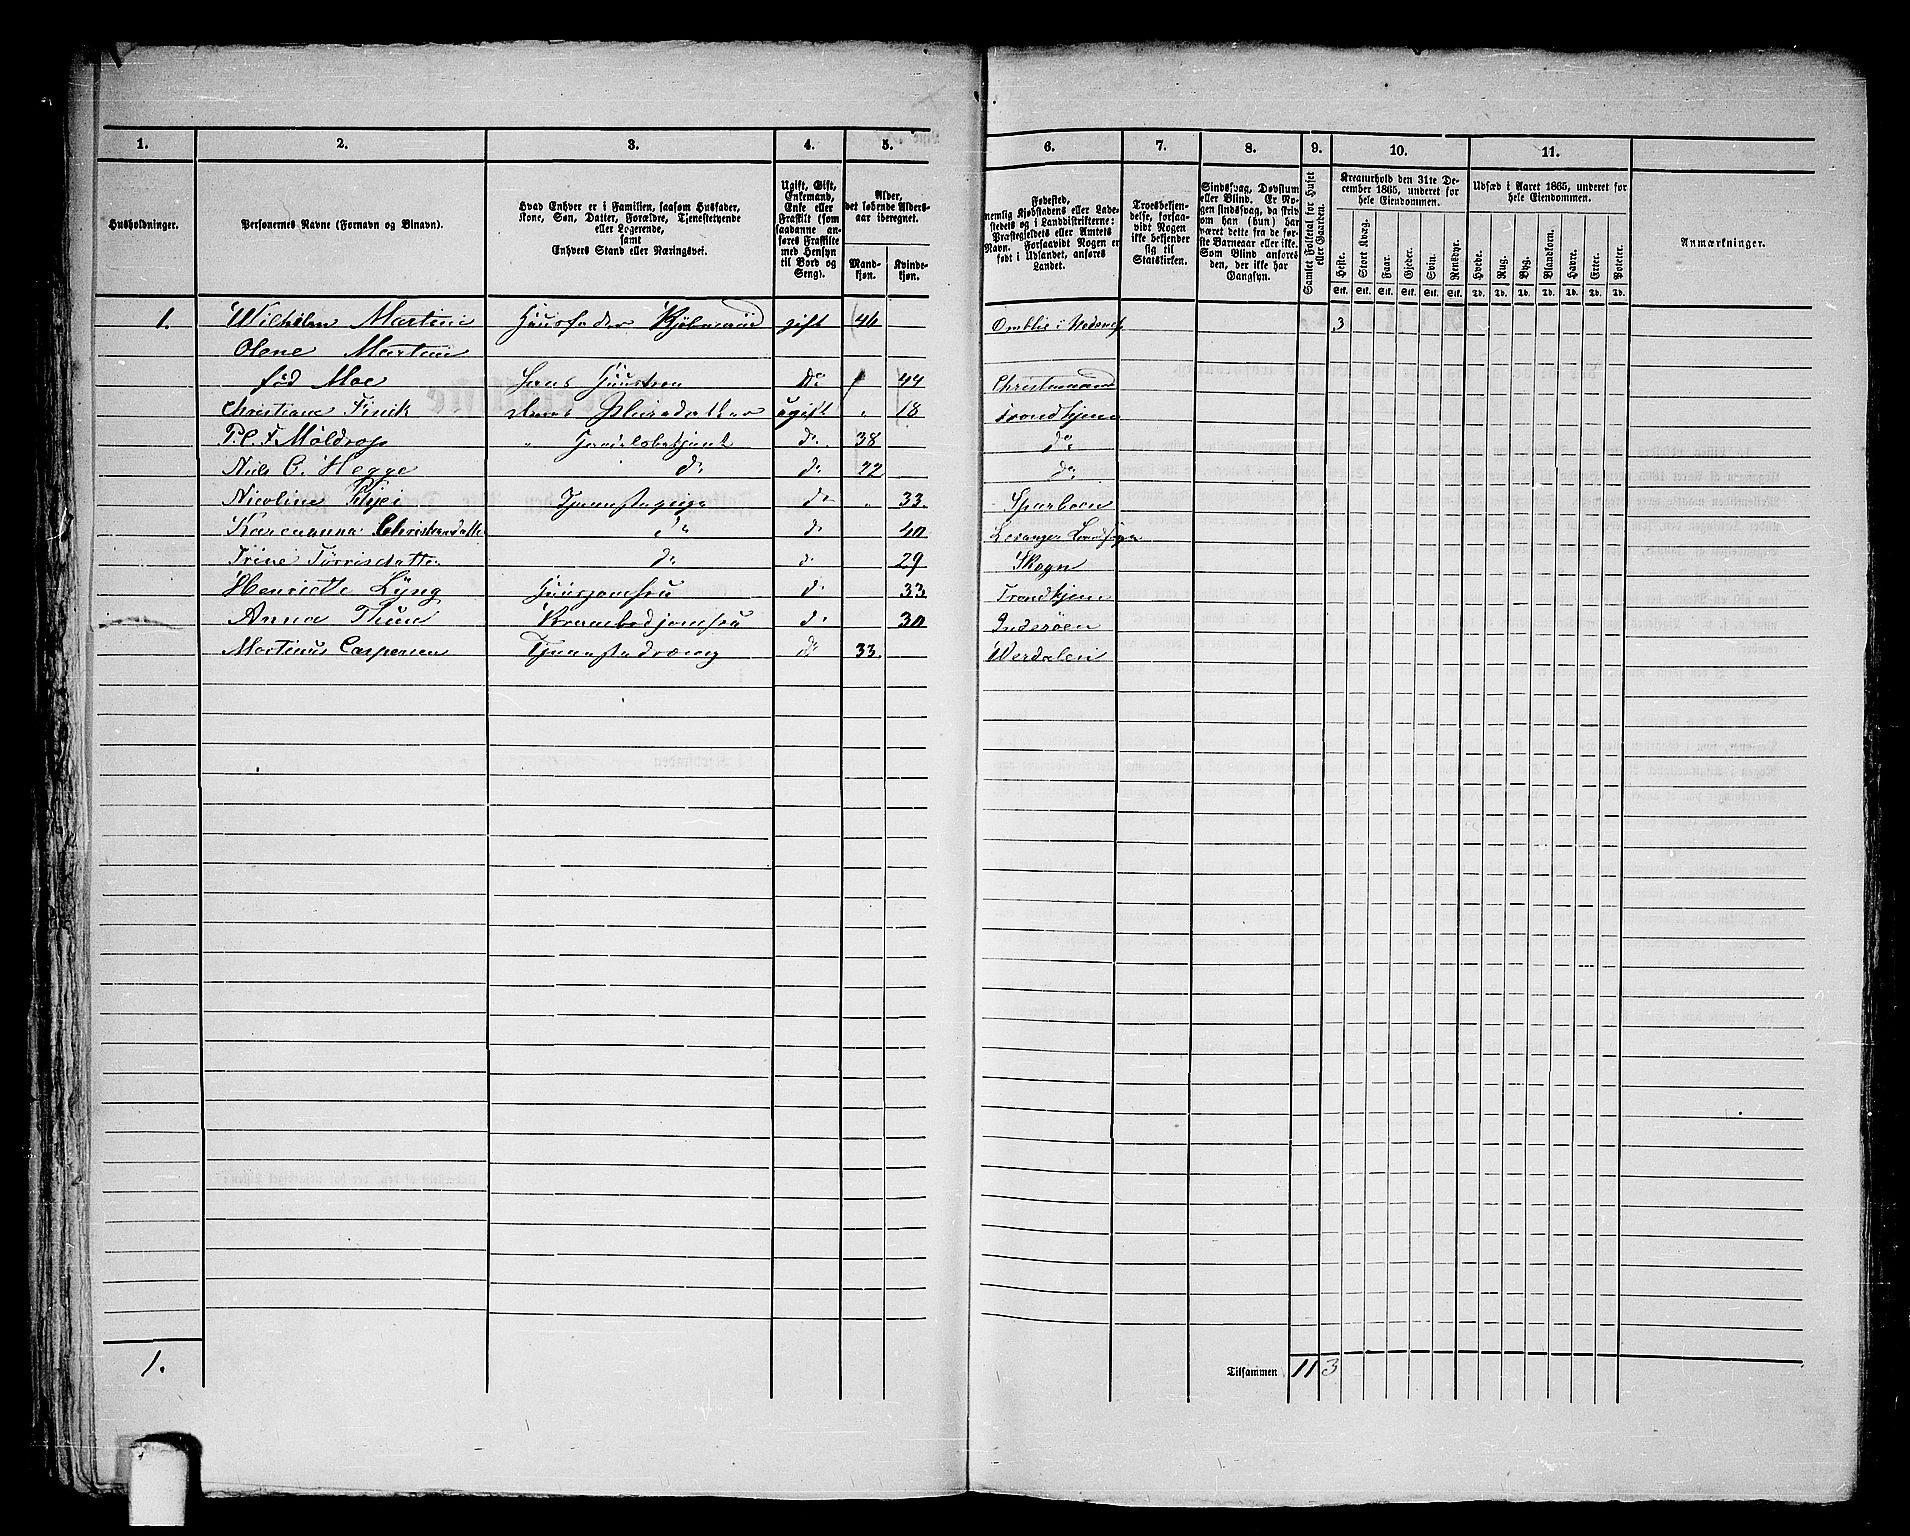 1. 2. 3. 4. 5. 6. 7. 8. 9. 10. 11.
Husholdninger.
Personernes Navne (Fornavn og Binavn).
Hvad Enhver er i Familien, saasom Husfader,
Kone, Søn, Datter, Forældre, Tjenestetyende
eller Logerende,
samt
Enhvers Stand eller Næringsvei.
Ugift, Gift,
Enkemand,
Enke eller
Fraskilt (som
saadanne an-
føres Fraskilte
med Hensyn
til Bord og
Seng).
Alder,
det løbende Alders-
aar iberegnet.
Mand-
kjøn.
Kvinde-
kjøn.
Fødested,
nemlig Kjøbstadens eller Lade-
stedets og i Landdistrikterne:
Præstegjeldets eller Amtets
Navn. Forsaavidt Nogen er
født i Udlandet, anføres
Landet.
Troesbekjen-
delse, forsaa-
vidt Nogen
ikke bekjender
sig til
Statskirken.
Sindssvag, Døvstum
eller Blind. Er No-
gen sindssvag, da skriv
om han (hun) har
været dette fra de før-
ste Barneaar eller ikke.
Som Blind anføres
den, der ikke har
Gangsyn.
Samlet Folketal for Huset
eller Gaarden.
Kreaturhold den 31te De-
cember 1865, underet for
hele Eiendommen.
Heste. Stort Kvæg. Faar. Gjeder. Svin. Rensdyr.
Stk. Stk. Stk. Stk. Stk. Stk.
Udsæd i Aaret 1865, underet for
hele Eiendommen.
Hvede. Rug. Byg. Blandkorn. Havre. Erter. Poteter.
Td. Td. Td. Td. Td. Td. Td.
Anmærkninger.
1. Wilhelm Martini Huusfader Kjøbmand gift 46 Omblie i Nedenes 3
Olene Martini
fød Moe Hans Huustru do 44 Christiansand
Christiane Finik deres Pleiedatter ugift " 18 Trondhjem
P. C. F. Møldrop " Handelsbetjent do 38 do
Niels C. Hegge do do 22 do
Nicoline Kjei Tjenestepige do " 33 Sparboen
Karenanna Christiansdatter do do 40 Levanger Landsogn
Trine Torrisdatter do do 29 Skogn
Henriette Lyng Huusjomfru do 33 Trondhjem
Anna Thue Krambodjomfru do 30 Inderøen
Martinus Caspersen Tjenestedreng do 33 Werdalen
1. Tilsammen 11 3